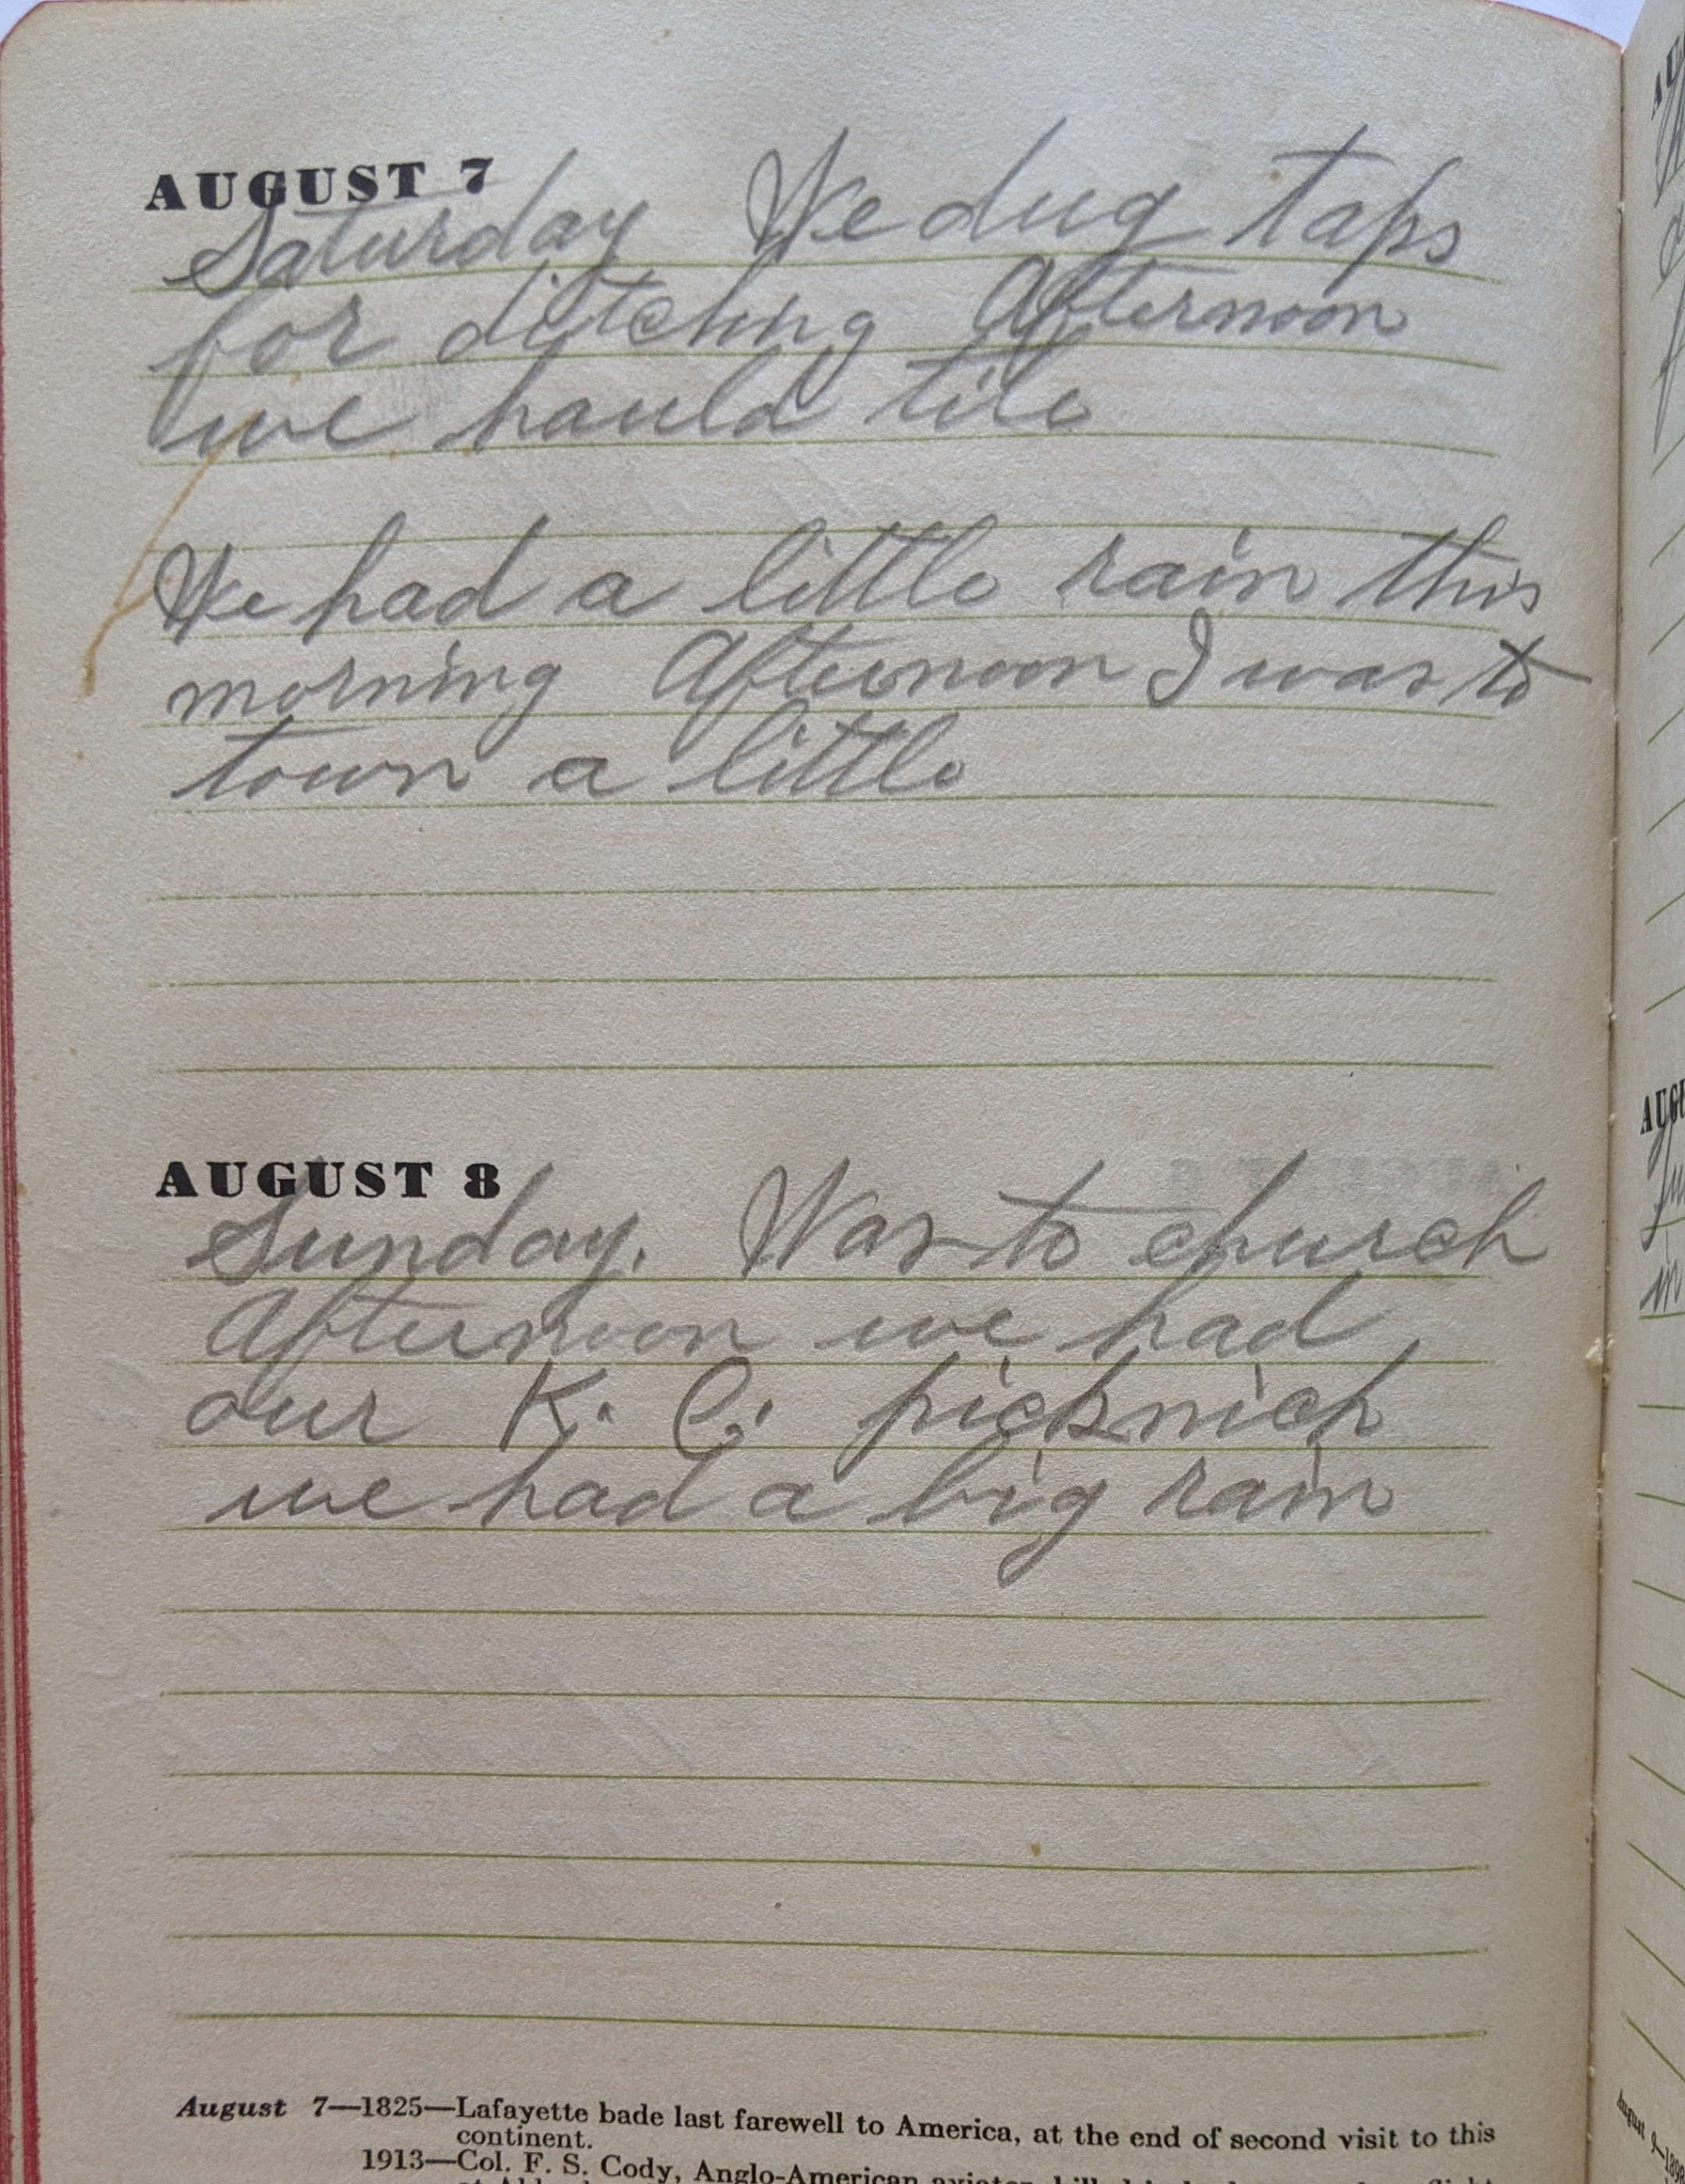 AUGUST 7
Saturday We dug taps
for ditching Afternoon
we hauld tile
We had a little rain this
morning Afternoon I was to
town a little
AUGUST 8
Sunday. Was to church
Afternoon we had
our K. C. picknick
we had a big rain
August 7—1825—Lafayette bade last farewell to America, at the end of second visit to this
continent.
1913—Col. F. S. Cody, Anglo-American aviator,